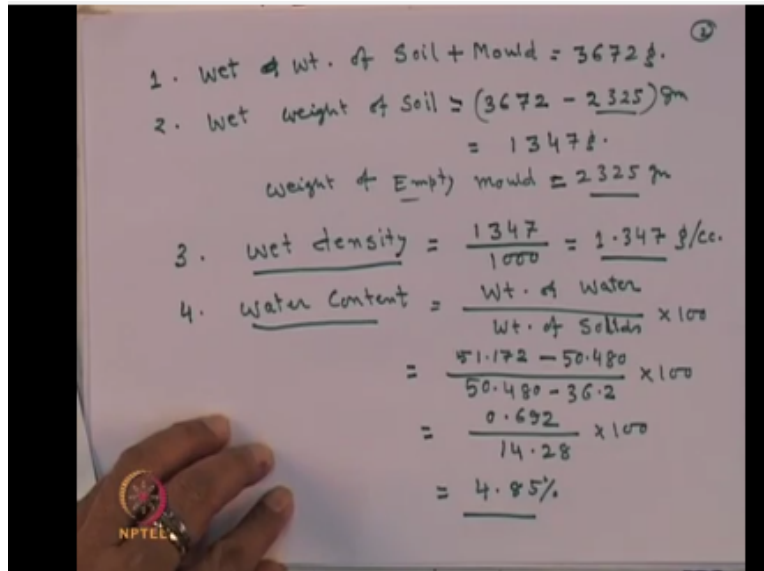 ②
1. Wet wt. of Soil + Mould = 3672 g.
2. Wet weight of Soil = (3672 - 2325) gm
= 1347 g.
Weight of Empty mould = 2325 gm
3. Wet density = 1347/1000 = 1.347 g/cc.
4. Water Content = Wt. of Water/Wt. of Solids × 100
= 51.172 - 50.480/50.480 - 36.2 × 100
= 0.692/14.28 × 100
= 4.85%
NPTEL